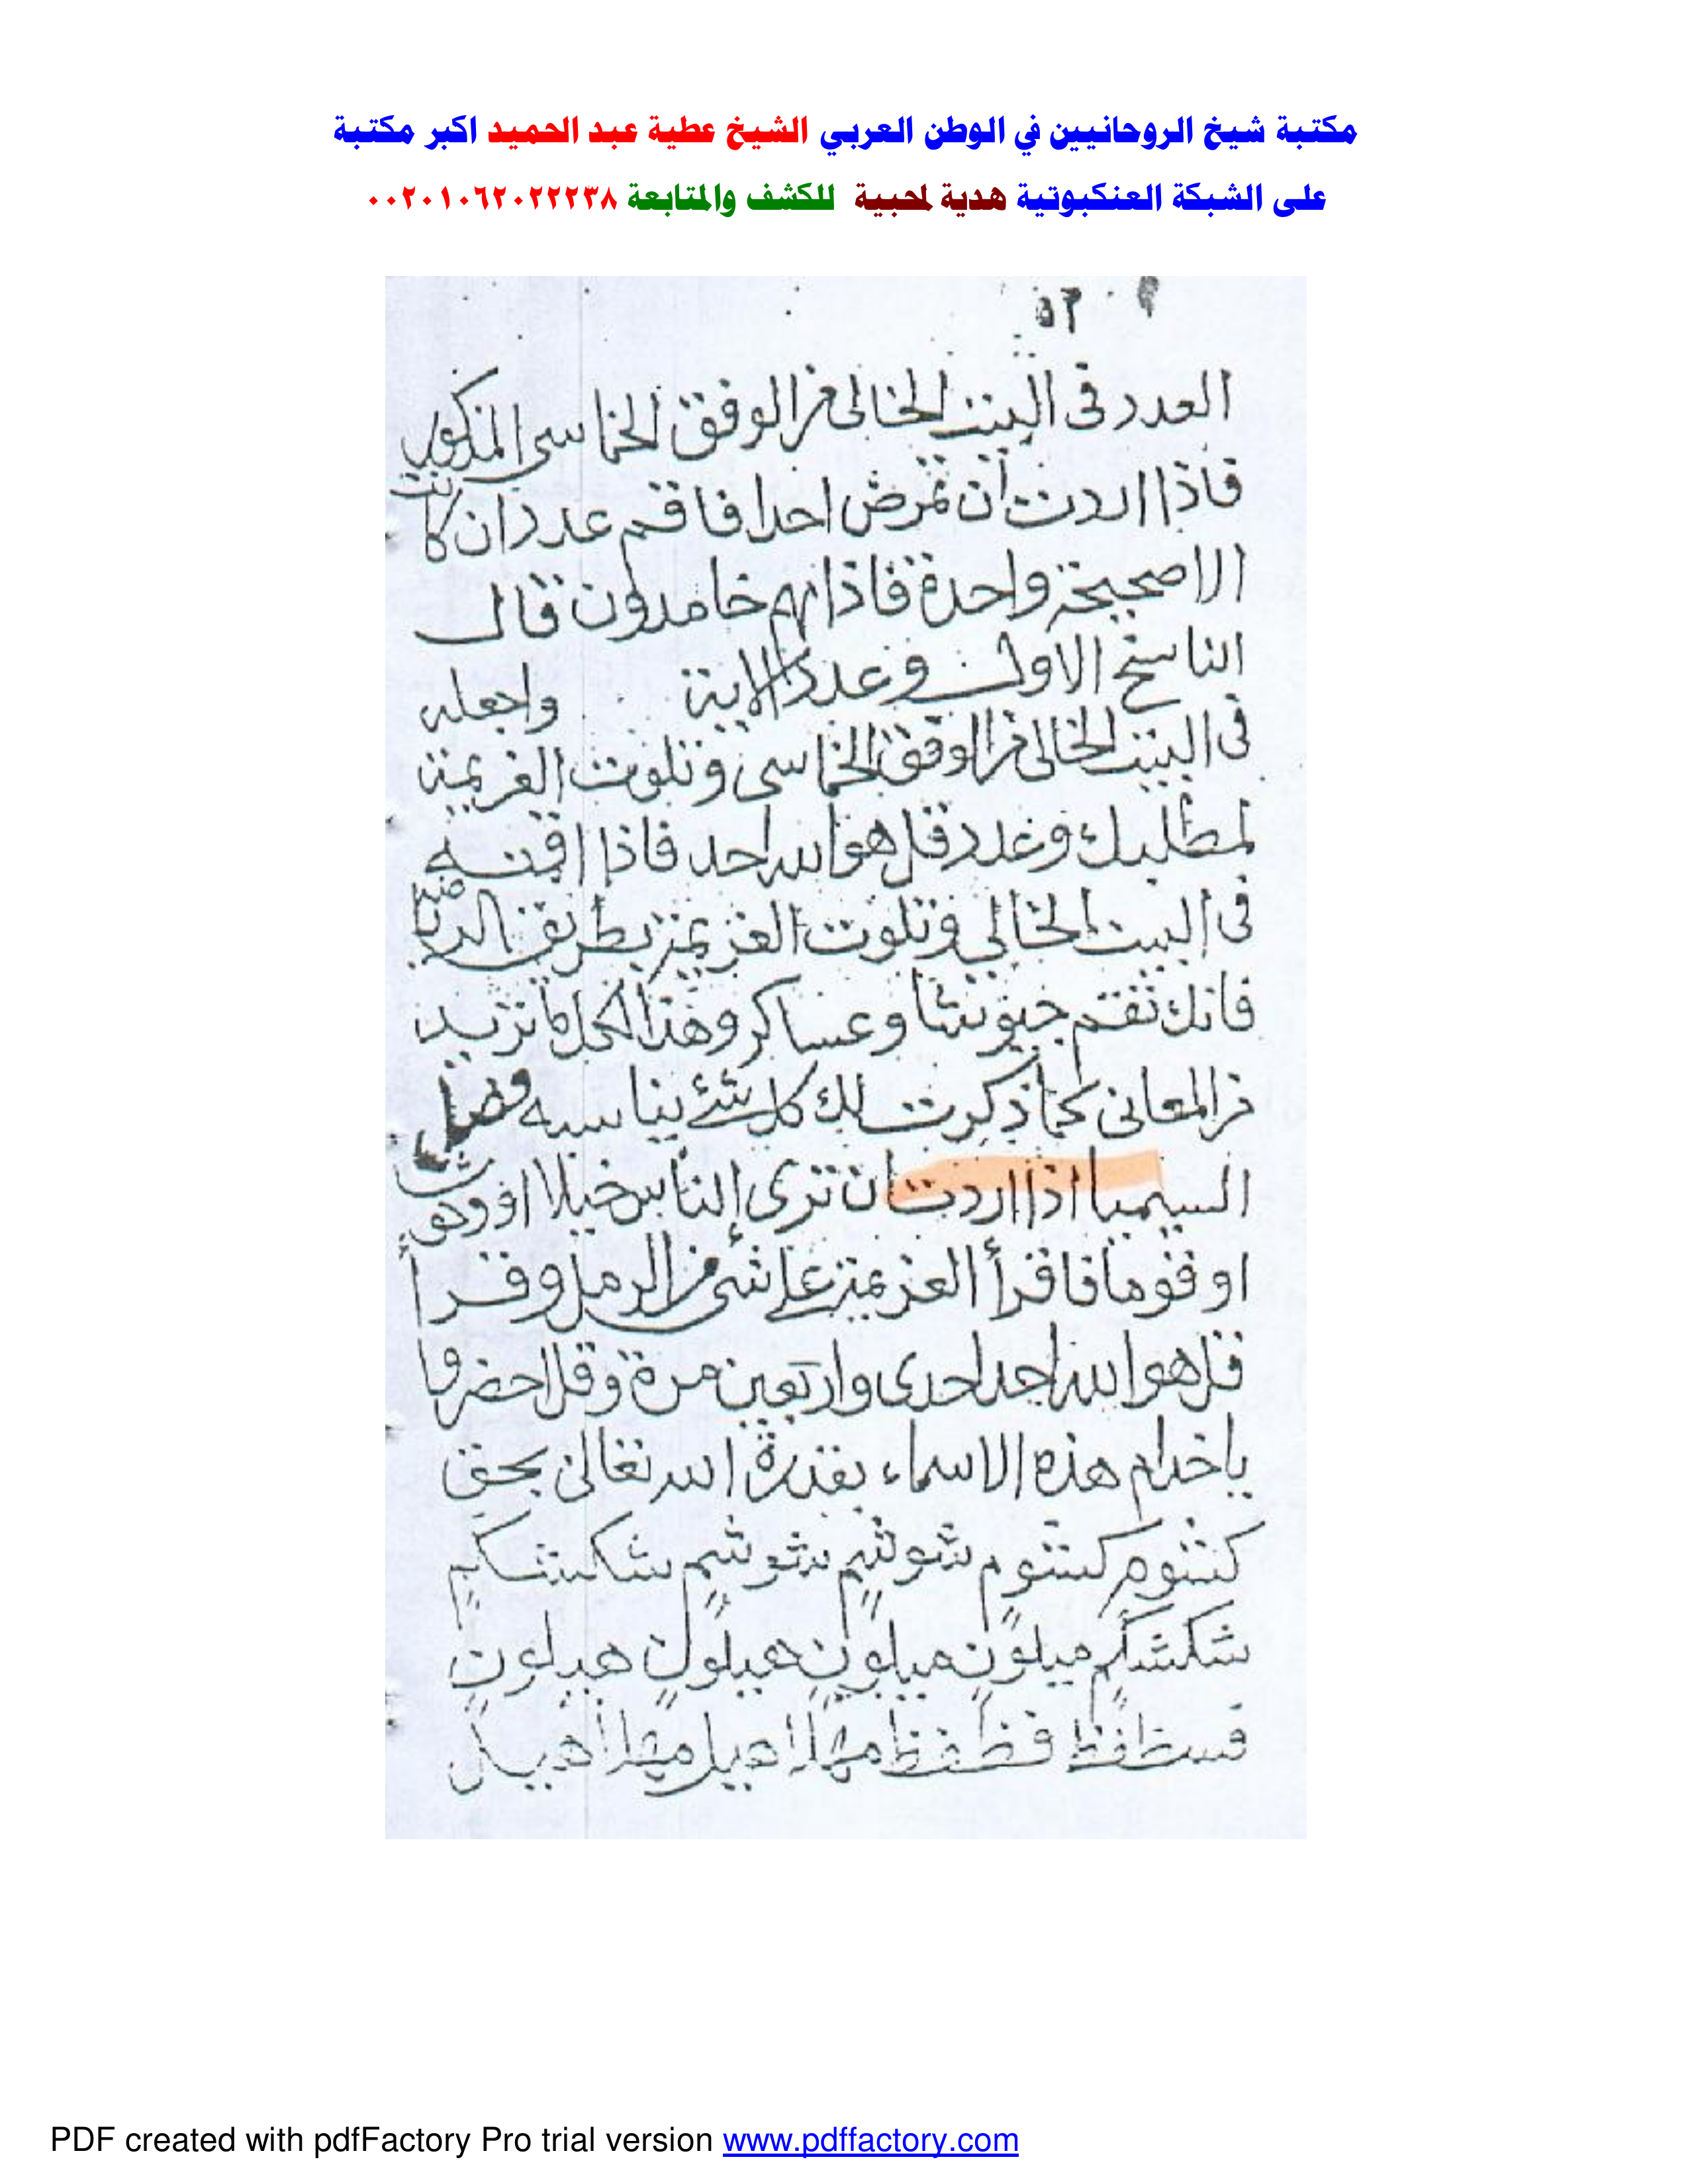 مكتبة شيخ الروحانيين في الوطن العربي الشيخ عطية عبد الحميد اكبر مكتبة
على الشبكة العنكبوتية هدية لمحبية للكشف والمتابعة ٠٠٢٠١٠٦٢٠٢٢٢٣٨
٥٢
العدد فى البيت الخالى من الوفق الخماسى المذكور
فاذا اردت ان تمرض احدا فاقم عدد ان كانت
الاصيحة واحدة فاذا هم خامدون قال
الناسخ الاول وعدد الاية واجعله
فى البيت الخالى من الوفق الخماسى وتلوت العزيمة
لمطلبك وعدد قل هو الله احد فاذا اقمته
فى البيت الخالي وتلوت العزيمة بطريق الرياضة
فانك تقم جيوشا وعساكر وهذا لكل ما تريد
من المعانى كما ذكرت لك كل شئ يناسبه فصل
السيميا اذا اردت ان ترى الناس خيلا او وحوش
او قوما فاقرأ العزيمة على شئ من الرمل وقرأ
قل هو الله احد احدى واربعين مرة وقل احضروا
ياخدام هذه الاسماء بقدرة الله تعالى بحق
كشوم كشوم شوشم شوشم شكشكم
شكشكم ميلون ميلون هيلون هيلون